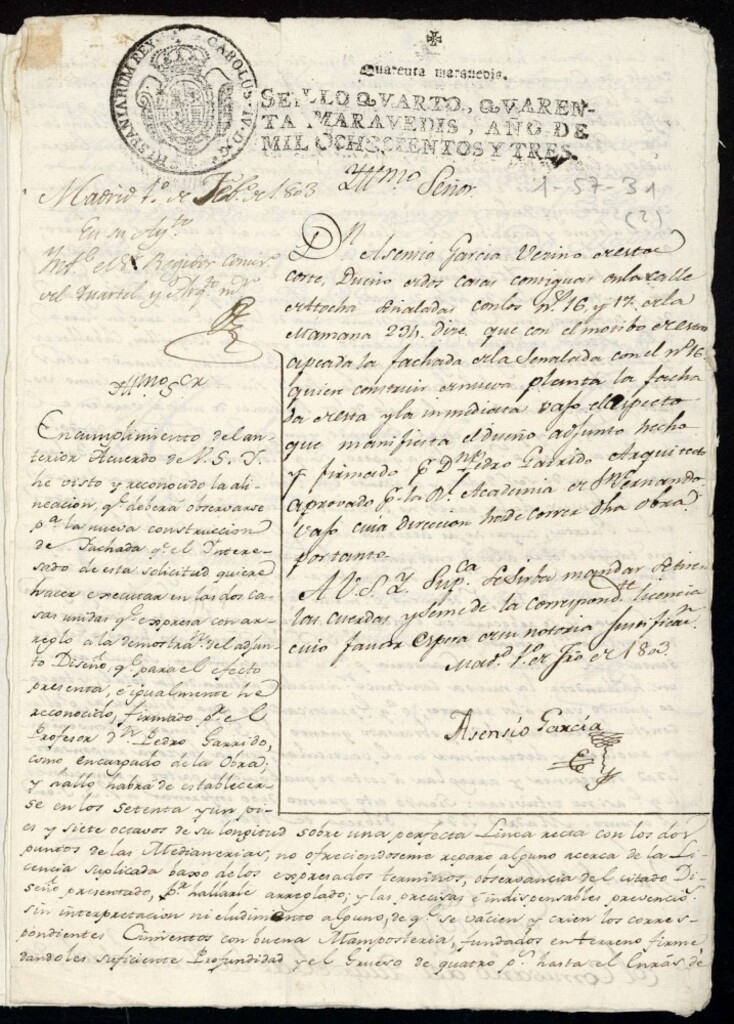 HISPANIARUM REX CAROLUS IV D G
Quarenta maravedis.
SELLO QVARTO, QVAREN-
TA MARAVEDIS, AÑO DE
MIL OCHOCIENTOS Y TRES.
1-57-31
(2)
Madrid 1º de Febº de 1803
En su Aytº
Infe. el Sr Regidor Comisº
del Quartel y Arqto mr
Yllmo Señor
Dn Asensio Garcia Vecino de esta
corte, Dueño de dos casas contiguas en la calle
de Atocha señaladas con los nos 16, y 17, de la
Manzana 234. Dice. que con el motibo de estar
apeada la fachada de la Señalada con el nº 16.
quiere construir de nueva planta la facha
da de esta y la inmediata vajo el aspecto
que manifiesta el diseño adjunto hecho
y firmado pr Dn Pedro Garrido Arquitecto
aprovado pr la Rl Academia de Sn Fernando
vajo cuia direccion ha de correr dha obra
por tanto
A V.S.I. Supca. se sirba mandar se tiren
las cuerdas, y se me de la correspondte licencia
cuio favor espera de su notoria Justifican
Madd 1º de Fro de 1803.
Asensio García
Yllmo Sor
En cumplimiento del an-
terior Acuerdo de V.S.I.
he visto y reconocido la ali-
neacion, qe deberá observarse
pa la nueva construccion
de Fachada qe el Intere-
sado de esta solicitud quiere
hacer executar en las dos ca-
sas unidas qe expresa con ar-
reglo á la demostran del adjun-
to Diseño, qe para el efecto
presenta, e igualmente he
reconocido, firmado pr el
Profesor dn Pedro Garrido,
como encargado de la Obra;
y hallo habrá de establecer-
se en los setenta y un pi-
es y siete octavos de su longitud sobre una perfecta Linea recta con los dos
puntos de las Medianerias, no ofreciendoseme reparo alguno acerca de la Li-
cencia suplicada baxo de los expresados terminos, observancia del citado Di-
seño presentado, pr hallarle arreglado; y las precisas e indispensables prevencios
sin interpretacion ni eludimento alguno, de qe se vacien y crien los corres-
pondientes Cimientos con buena Mamposteria, fundados en terreno firme
dandoles suficiente Profundidad y el Grueso de quatro ps hasta el Enrás de